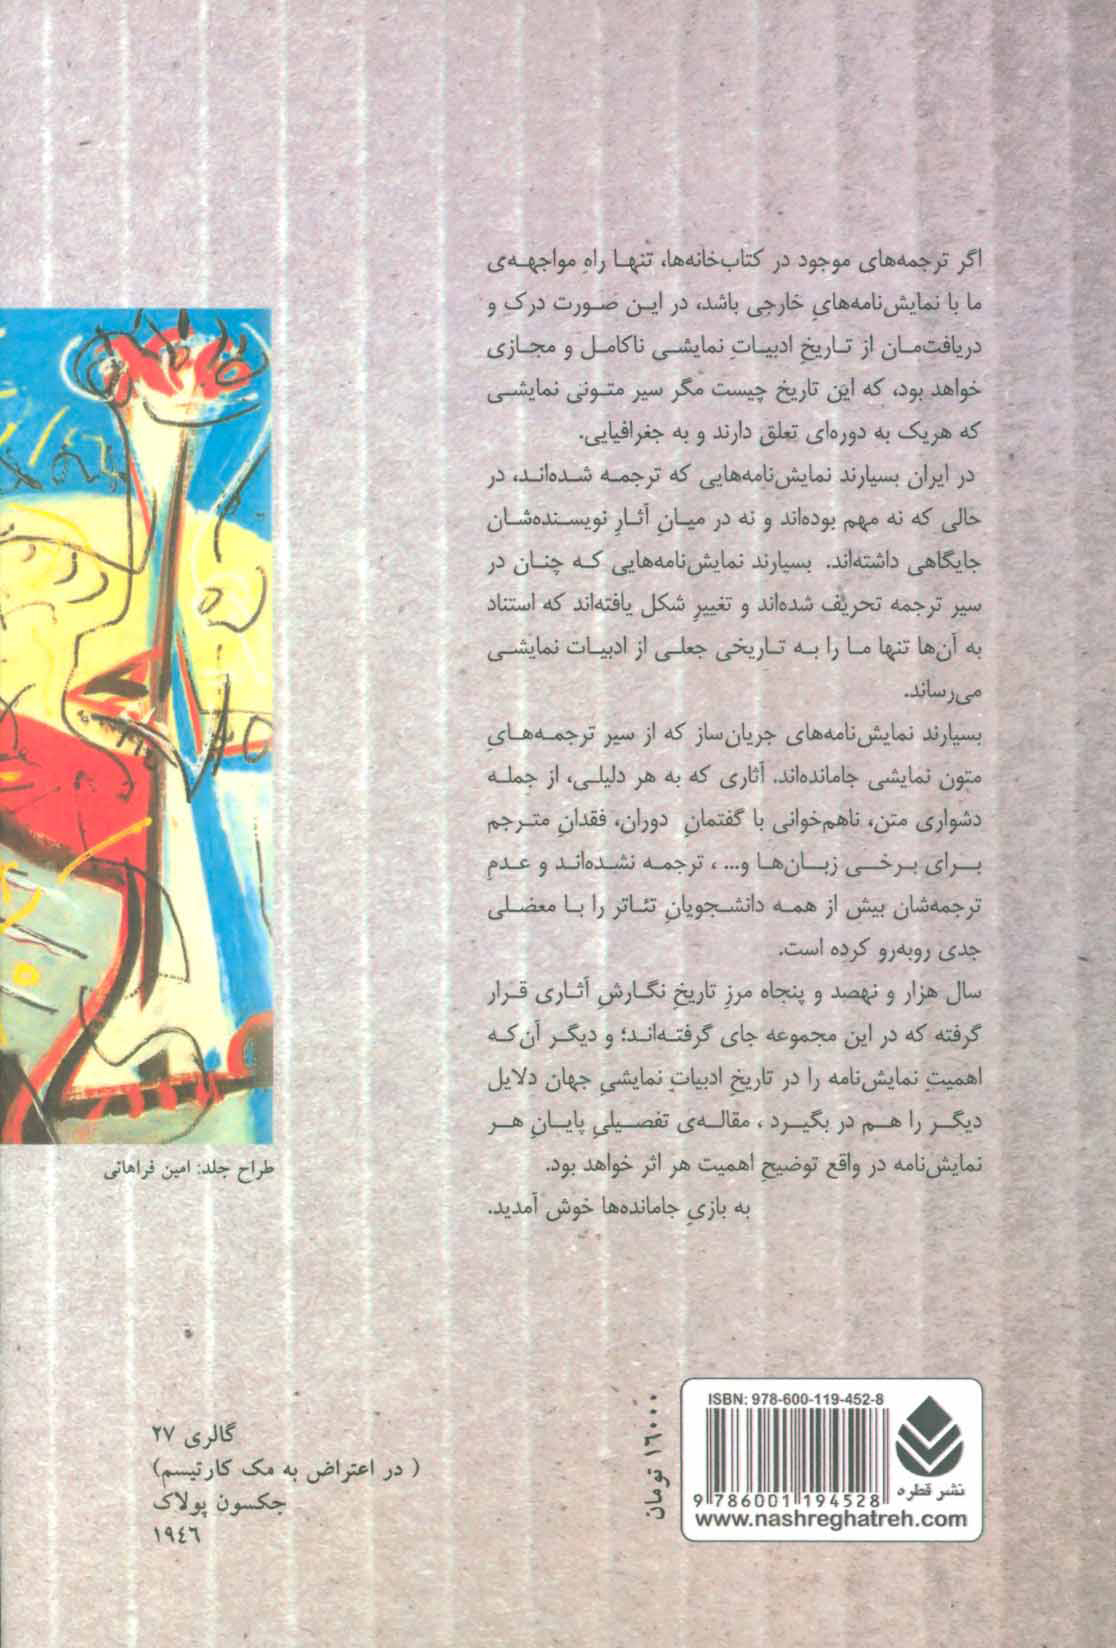 اگر ترجمه‌های موجود در کتاب‌خانه‌ها، تنها راهِ مواجهه‌ی
ما با نمایش‌نامه‌هایِ خارجی باشد، در این صورت درک و
دریافت‌مان از تاریخِ ادبیاتِ نمایشی ناکامل و مجازی
خواهد بود، که این تاریخ چیست مگر سیر متونی نمایشی
که هریک به دوره‌ای تعلق دارند و به جغرافیایی.
در ایران بسیارند نمایش‌نامه‌هایی که ترجمه شده‌اند، در
حالی که نه مهم بوده‌اند و نه در میانِ آثارِ نویسنده‌شان
جایگاهی داشته‌اند. بسیارند نمایش‌نامه‌هایی که چنان در
سیر ترجمه تحریف شده‌اند و تغییرِ شکل یافته‌اند که استناد
به آن‌ها تنها ما را به تاریخی جعلی از ادبیات نمایشی
می‌رساند.
بسیارند نمایش‌نامه‌های جریان‌ساز که از سیر ترجمه‌هایِ
متون نمایشی جامانده‌اند. آثاری که به هر دلیلی، از جمله
دشواری متن، ناهم‌خوانی با گفتمانِ دوران، فقدانِ مترجم
برای برخی زبان‌ها و... ، ترجمه نشده‌اند و عدمِ
ترجمه‌شان بیش از همه دانشجویانِ تئاتر را با معضلی
جدی روبه‌رو کرده است.
سال هزار و نهصد و پنجاه مرزِ تاریخِ نگارشِ آثاری قرار
گرفته که در این مجموعه جای گرفته‌اند؛ و دیگر آن‌که
اهمیتِ نمایش‌نامه را در تاریخِ ادبیاتِ نمایشیِ جهان دلایل
دیگر را هم در بگیرد ، مقاله‌ی تفصیلیِ پایانِ هر
نمایش‌نامه در واقع توضیحِ اهمیت هر اثر خواهد بود.
به بازیِ جامانده‌ها خوش آمدید.
طراح جلد: امین فراهانی
گالری ۲۷
( در اعتراض به مک کارتیسم)
جکسون پولاک
۱۹٤٦
۱۶۰۰۰ تومان
ISBN: 978-600-119-452-8
9 786001 194528
نشر قطره
www.nashreghatreh.com